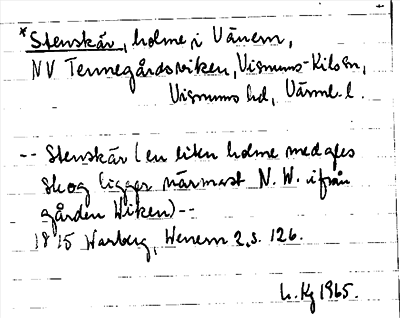 *Stenskär, holme i Vänern,
NV Tennegårdsviken, Visnums-Kils sn,
Visnums hd, Värml. l.
-- Stenskär (en liten holme med
skog ligger närmast N. W. ifrån
gården Wiken) --
1815 Warberg, Wenern 2, s. 126.
1965.